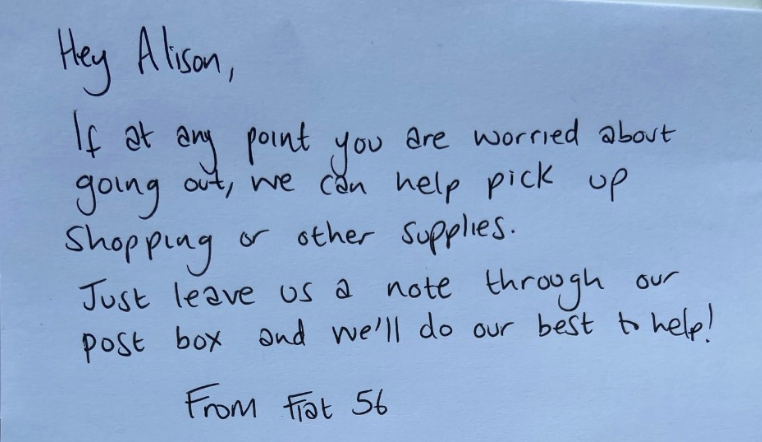 Hey Alison,
If at any point you are worried about
going out, we can help pick up
shopping or other supplies.
Just leave us a note through our
post box and we'll do our best to help!
From Flat 56